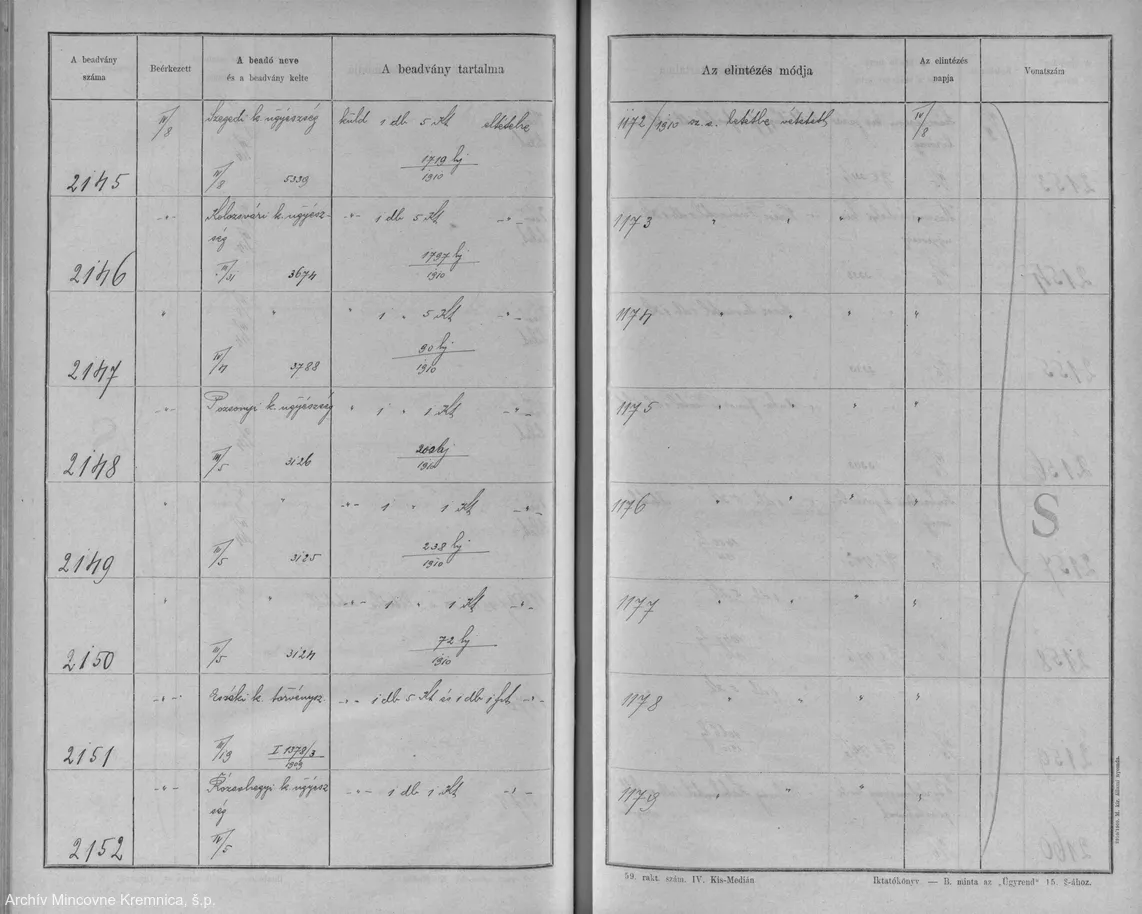 A beadvány száma
Beérkezett
A beadó neve és a beadvány kelte
A beadvány tartalma
Az elintézés módja
Az elintézés napja
Vonatszám
IV/8 Szegedi k. ügyészség küld 1 db 5 Kt eltételre 1172/1910 sz. a. letétbe vétetett IV/8
2145 IV/8 5339 1719 bj/1910
-"- Kolozsvári k. ügyész- -"- 1 db 5 Kt -"- 1173 " " " "
ség
2146 III/31 3674 1797 bj/1910
" " " 1 " 5 Kt -"- 1174 " " " "
2147 IV/4 3788 90 bj/1910
-"- Pozsonyi k. ügyészség " 1 " 1 Kt -"- 1175 " " " "
2148 IV/5 3126 200 bj/1910
" " -"- 1 " 1 Kt -"- 1176 " " " "
2149 IV/5 3125 238 bj/1910
S
" " -"- 1 " 1 Kt -"- 1177 " " " "
2150 IV/5 3124 72 bj/1910
-"- Eszéki k. törvénysz. -"- 1 db 5 Kt és 1 db 1 frt -"- 1178 " " " "
2151 III/19 I 1378/3 1909
-"- Rózsahegyi k. ügyész -"- 1 db 1 Kt -"- 1179 " " " "
ség
2152 IV/5
59. rakt. szám. IV. Kis-Medián
Iktatókönyv — B. minta az „Ügyrend" 15. §-ához.
Archív Mincovne Kremnica, š.p.